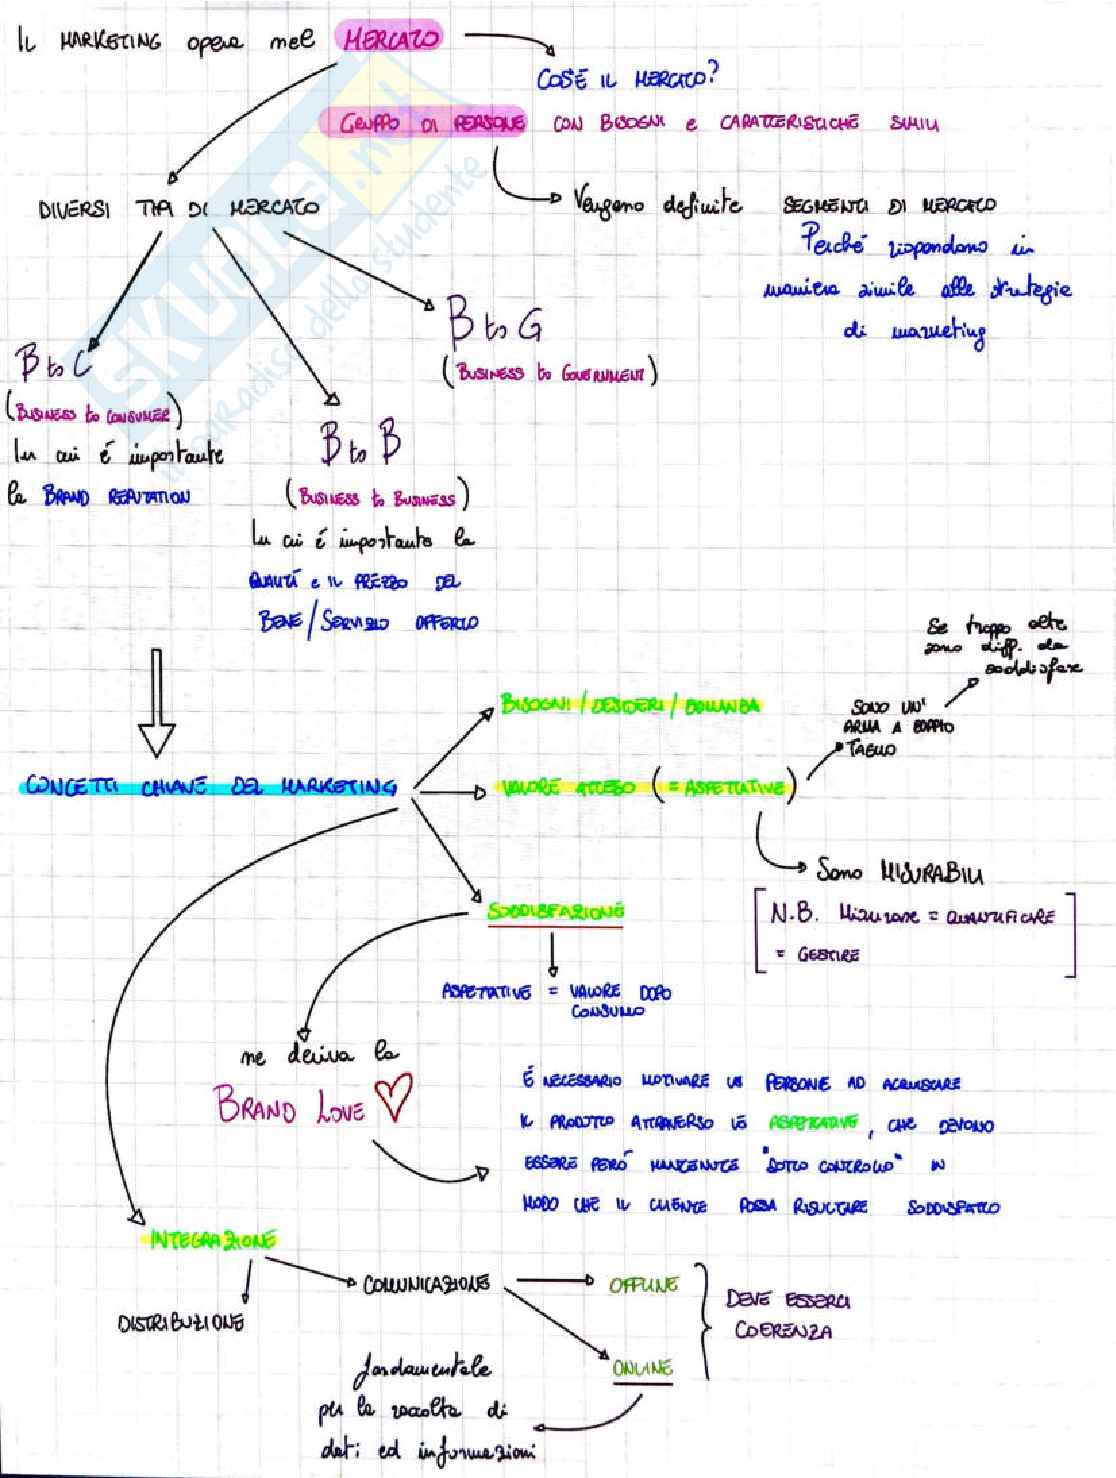 IL MARKETING opera nel MERCATO
COS'É IL MERCATO?
GRUPPO DI PERSONE CON BISOGNI e CARATTERISTICHE SIMILI
DIVERSI TIPI DI MERCATO
Vengono definite SEGMENTI DI MERCATO
Perché rispondono in
maniera simile alle strategie
di marketing
B to G
(BUSINESS to GOVERNMENT)
B to C
(BUSINESS to CONSUMER)
In cui é importante
la BRAND REPUTATION
B to B
(BUSINESS to BUSINESS)
In cui é importante la
QUALITÁ e IL PREZZO DEL
BENE/SERVIZIO OFFERTO
SKUOLA.net
il paradiso dello studente
Se troppo alte
sono diff. da
soddisfare
BISOGNI/DESIDERI/DOMANDA
SONO UN'
ARMA A DOPPIO
TAGLIO
CONCETTI CHIAVE DEL MARKETING
VALORE ATTESO (= ASPETTATIVE)
Sono MISURABILI
SODDISFAZIONE
[N.B. Misurare = QUANTIFICARE
= GESTIRE]
ASPETTATIVE = VALORE DOPO
CONSUMO
ne deriva la
BRAND LOVE
É NECESSARIO MOTIVARE LE PERSONE AD ACQUISTARE
IL PRODOTTO ATTRAVERSO LE ASPETTATIVE, CHE DEVONO
ESSERE PERÓ MANTENUTE "SOTTO CONTROLLO" IN
MODO CHE IL CLIENTE POSSA RISULTARE SODDISFATTO
INTEGRAZIONE
COMUNICAZIONE
OFFLINE
DEVE ESSERCI
COERENZA
DISTRIBUZIONE
ONLINE
fondamentale
per la raccolta di
dati ed informazioni